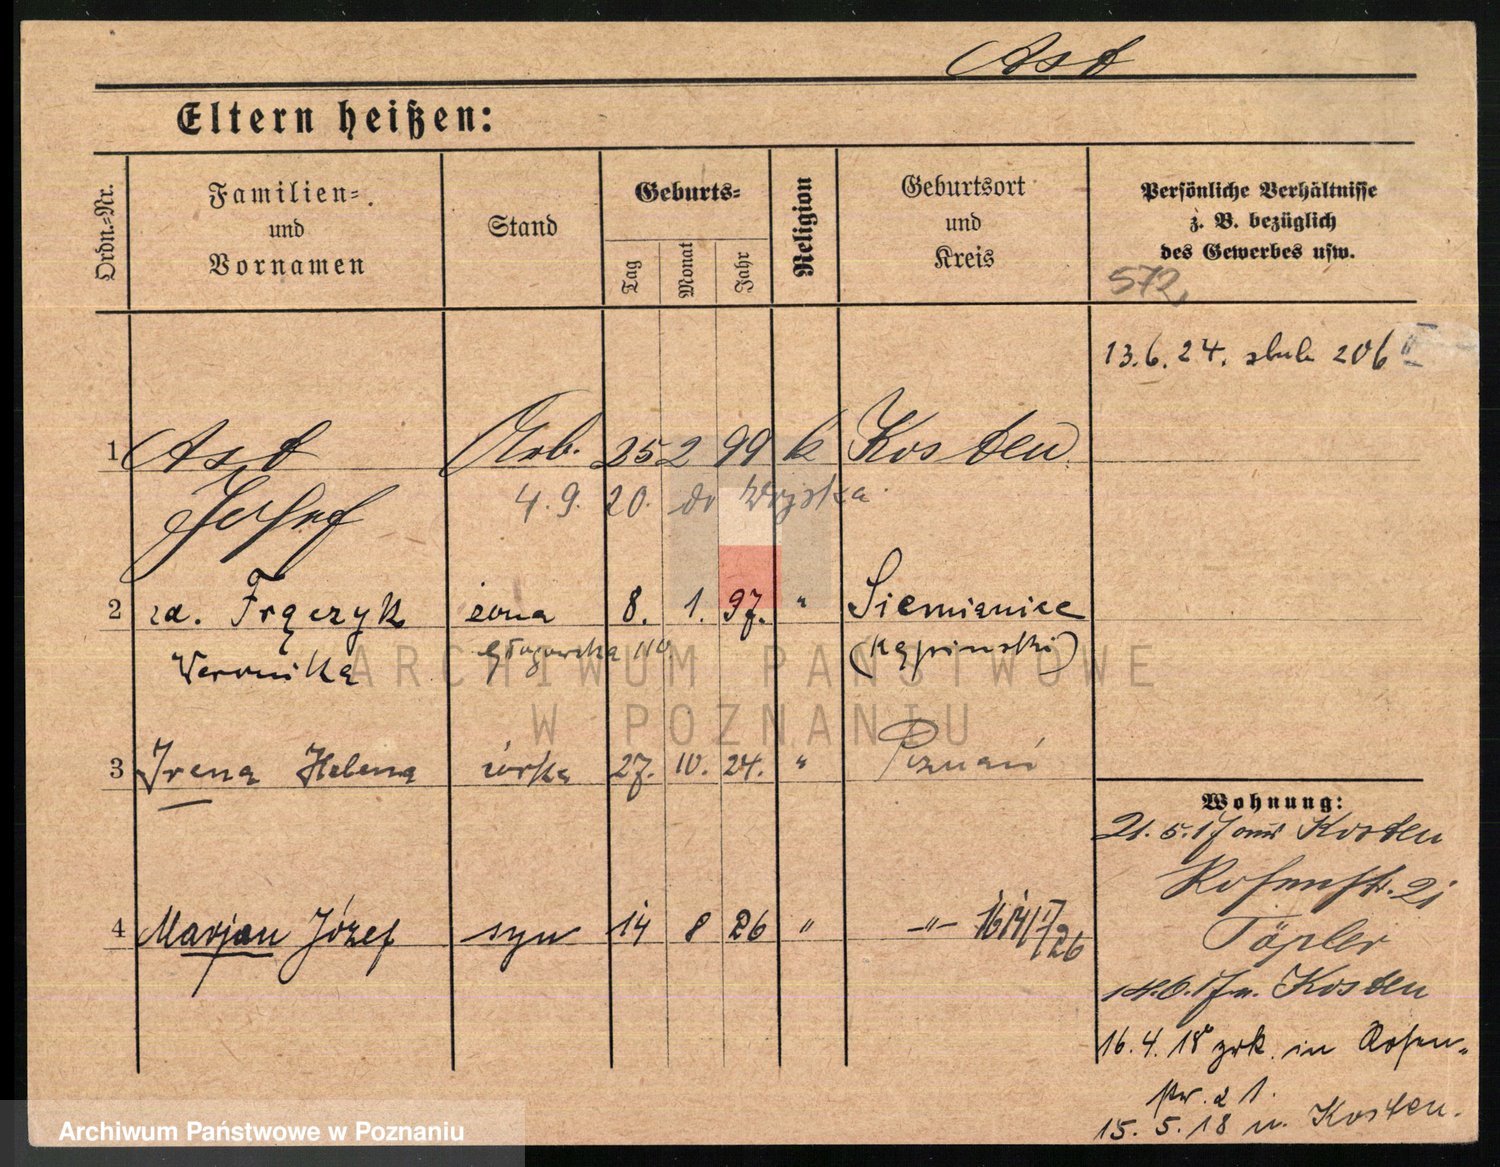 Ast
Eltern heißen:
Ordn.-Nr.
Familien-
und
Vornamen
Stand
Geburts-
Tag
Monat
Jahr
Religion
Geburtsort
und
Kreis
Persönliche Verhältnisse
z. B. bezüglich
des Gewerbes usw.
572
13.6.24. 206
1 Ast Arb. 25 2 99 k Kosten
Josef
4.9.20. do Wojska
2 za. Frączyk żona 8. 1. 97. " Siemianice
Weronika Głogowska 110. (Kępiński)
3 Irena Helena córka 27. 10. 24. " Poznań
4 Marjan Józef syn 14 8 26 " -"-
Wohnung:
21.5.17 aus Kosten
Rosenstr. 21
Töpler
14.6.17 n. Kosten
16.4.18 zrk. in Rosen-
str. 21.
15.5.18 n. Kosten.
ARCHIWUM PAŃSTWOWE
W POZNANIU
Archiwum Państwowe w Poznaniu